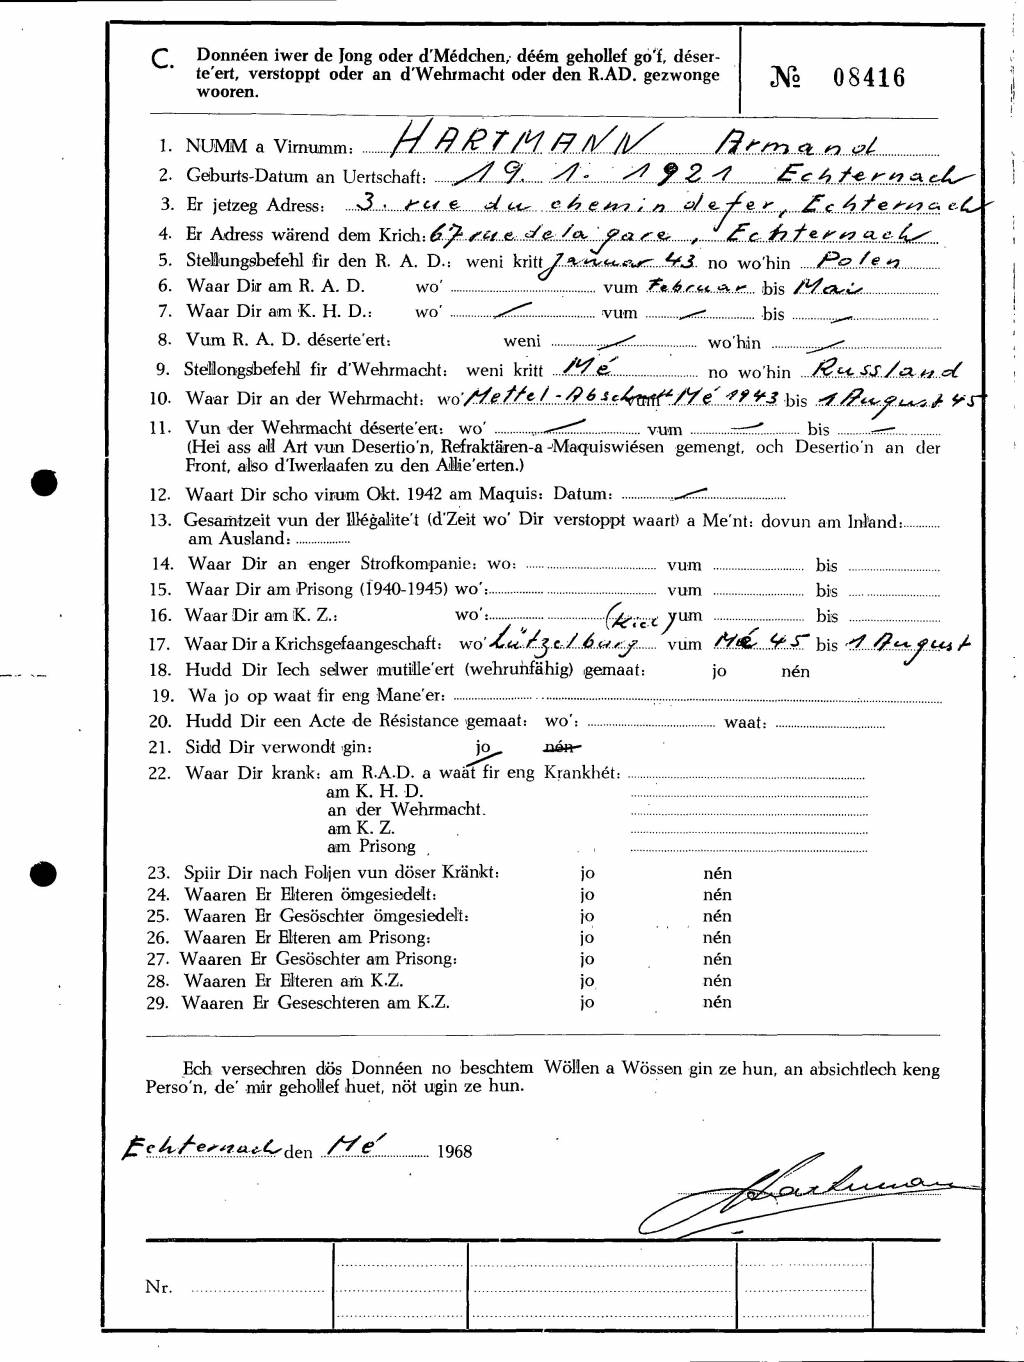 C. Donnéen iwer de Jong oder d'Médchen, déém gehollef go'f, déser-
te'ert, verstoppt oder an d'Wehrmacht oder den R.AD. gezwonge
wooren.
№ 08416
1. NUMM a Virnumm: HARTMANN Armand
2. Geburts-Datum an Uertschaft: 19. 1. 1921 Echternach
3. Er jetzeg Adress: 3. rue du chemin defer, Echternach
4. Er Adress wärend dem Krich: 67 rue de la gare, Echternach
5. Stellungsbefehl fir den R. A. D.: weni kritt Januar 43 no wo'hin Polen
6. Waar Dir am R. A. D. wo' vum Februar bis Mai
7. Waar Dir am K. H. D.: wo' — vum — bis —
8. Vum R. A. D. déserte'ert: weni — wo'hin —
9. Stellongsbefehl fir d'Wehrmacht: weni kritt Mé no wo'hin Russland
10. Waar Dir an der Wehrmacht: wo' Mettel-Abschnitt Mé 1943 bis 1 August 45
11. Vun der Wehrmacht déserte'ert: wo' — vum — bis —
(Hei ass all Art vun Desertio'n, Refraktären-a -Maquiswiésen gemengt, och Desertio'n an der
Front, also d'Iwerlaafen zu den Allie'erten.)
12. Waart Dir scho virum Okt. 1942 am Maquis: Datum: —
13. Gesamtzeit vun der Illégalite't (d'Zeit wo' Dir verstoppt waart) a Me'nt: dovun am Inland:
am Ausland:
14. Waar Dir an enger Strofkompanie: wo: vum bis
15. Waar Dir am Prisong (1940-1945) wo': vum bis
16. Waar Dir am K. Z.: wo': vum bis
(Kiel)
17. Waar Dir a Krichsgefaangeschaft: wo' Lützelburg vum Mé 45 bis 1 August
18. Hudd Dir Iech selwer mutille'ert (wehrunfähig) gemaat: jo nén
19. Wa jo op waat fir eng Mane'er:
20. Hudd Dir een Acte de Résistance gemaat: wo': waat:
21. Sidd Dir verwondt gin: jo nén
22. Waar Dir krank: am R.A.D. a waat fir eng Krankhét:
am K. H. D.
an der Wehrmacht.
am K. Z.
am Prisong
23. Spiir Dir nach Foljen vun döser Kränkt: jo nén
24. Waaren Er Elteren ömgesiedelt: jo nén
25. Waaren Er Gesöschter ömgesiedelt: jo nén
26. Waaren Er Elteren am Prisong: jo nén
27. Waaren Er Gesöschter am Prisong: jo nén
28. Waaren Er Elteren am K.Z. jo nén
29. Waaren Er Geseschteren am K.Z. jo nén
Ech versechren dös Donnéen no beschtem Wöllen a Wössen gin ze hun, an absichtlech keng
Perso'n, de' mir gehollef huet, nöt ugin ze hun.
Echternach den Mé 1968
Hartmann
Nr.